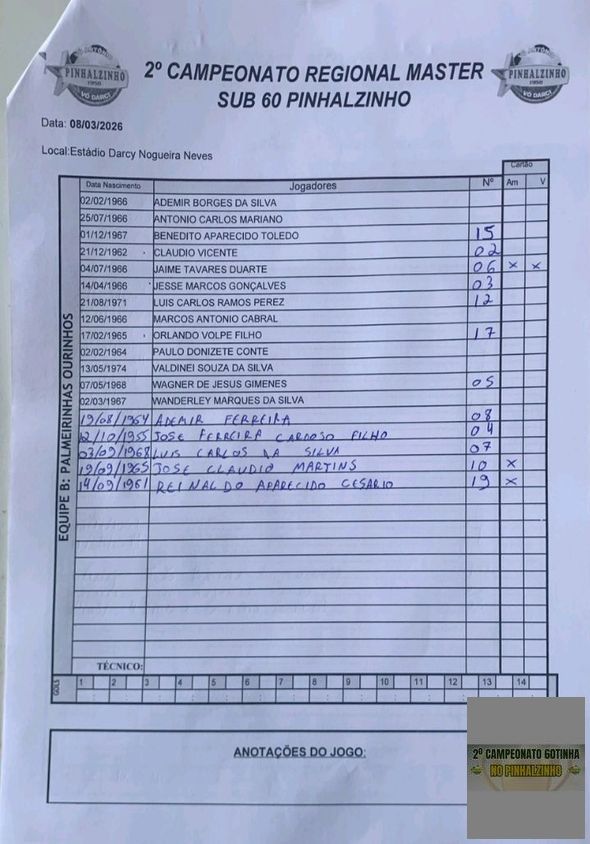 2º CAMPEONATO REGIONAL MASTER
SUB 60 PINHALZINHO
PINHALZINHO
VÔ DARCI
PINHALZINHO
VÔ DARCI
Data: 08/03/2026
Local:Estádio Darcy Nogueira Neves
Cartão
Data Nascimento Jogadores Nº Am V
EQUIPE B: PALMEIRINHAS OURINHOS
02/02/1966 ADEMIR BORGES DA SILVA
25/07/1966 ANTONIO CARLOS MARIANO
01/12/1967 BENEDITO APARECIDO TOLEDO 15
21/12/1962 CLAUDIO VICENTE 02
04/07/1966 JAIME TAVARES DUARTE 06 x x
14/04/1966 JESSE MARCOS GONÇALVES 03
21/08/1971 LUIS CARLOS RAMOS PEREZ 12
12/06/1966 MARCOS ANTONIO CABRAL
17/02/1965 ORLANDO VOLPE FILHO 17
02/02/1964 PAULO DONIZETE CONTE
13/05/1974 VALDINEI SOUZA DA SILVA
07/05/1968 WAGNER DE JESUS GIMENES 05
02/03/1967 WANDERLEY MARQUES DA SILVA
19/08/1964 ADEMIR FERREIRA 08
12/10/1955 JOSE FERREIRA CARDOSO FILHO 04
03/09/1968 LUIS CARLOS DA SILVA 07
19/09/1965 JOSE CLAUDIO MARTINS 10 x
14/09/1961 REINALDO APARECIDO CESARIO 19 x
TÉCNICO:
GOLS 1 2 3 4 5 6 7 8 9 10 11 12 13 14
ANOTAÇÕES DO JOGO:
2º CAMPEONATO GOTINHA
NO PINHALZINHO